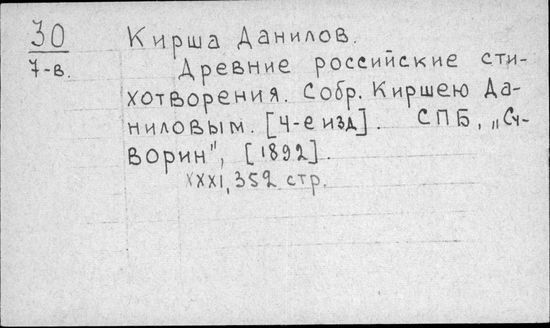 30 Кирша Данилов.
7-в. Древние российские сти-
хотворения. Собр. Киршею Да-
ниловым. [4-е изд]. СПБ, „Су-
ворин", [1892].
XXXI, 352 стр.